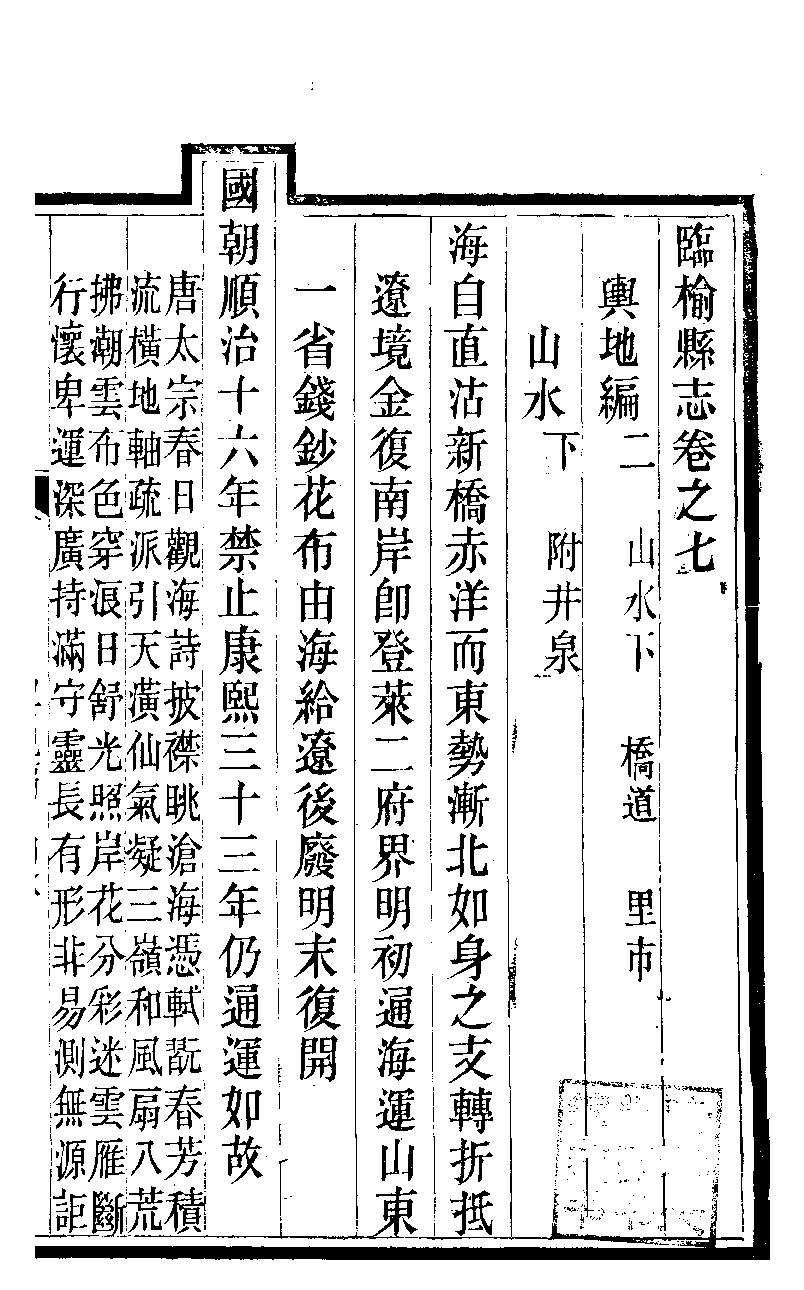 臨榆縣志卷之七
輿地編二 山水下 橋道 里巿
山水下 附井泉
海自直沽新橋赤洋而東勢漸北如身之支轉折抵
遼境金復南岸卽登萊二府界明初通海運山東
一省錢鈔花布由海給遼後廢明末復開
國朝順治十六年禁止康熙三十三年仍通運如故
唐太宗春日觀海詩披襟眺滄海憑軾翫春芳積
流橫地軸疏派引天潢仙氣凝三嶺和風扇八荒
拂潮雲布色穿浪日舒光照岸花分彩迷雲雁斷
行懷卑運深廣持滿守靈長有形非易測無源詎